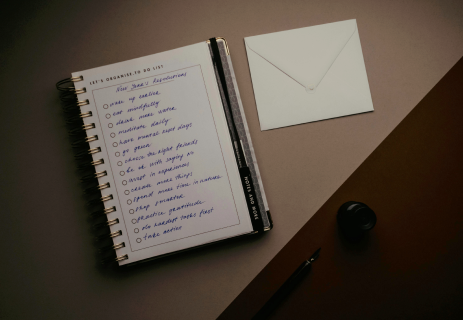 LET'S ORGANISE: TO DO LIST
New Year's Resolutions
wake up earlier
eat mindfully
drink more water
meditate daily
have mental rest days
go green
choose the right friends
be ok with saying no
invest in experiences
create more things
spend more time in nature
shop smarter
practice gratitude
do hardest tasks first
take action
NOTES AND MORE